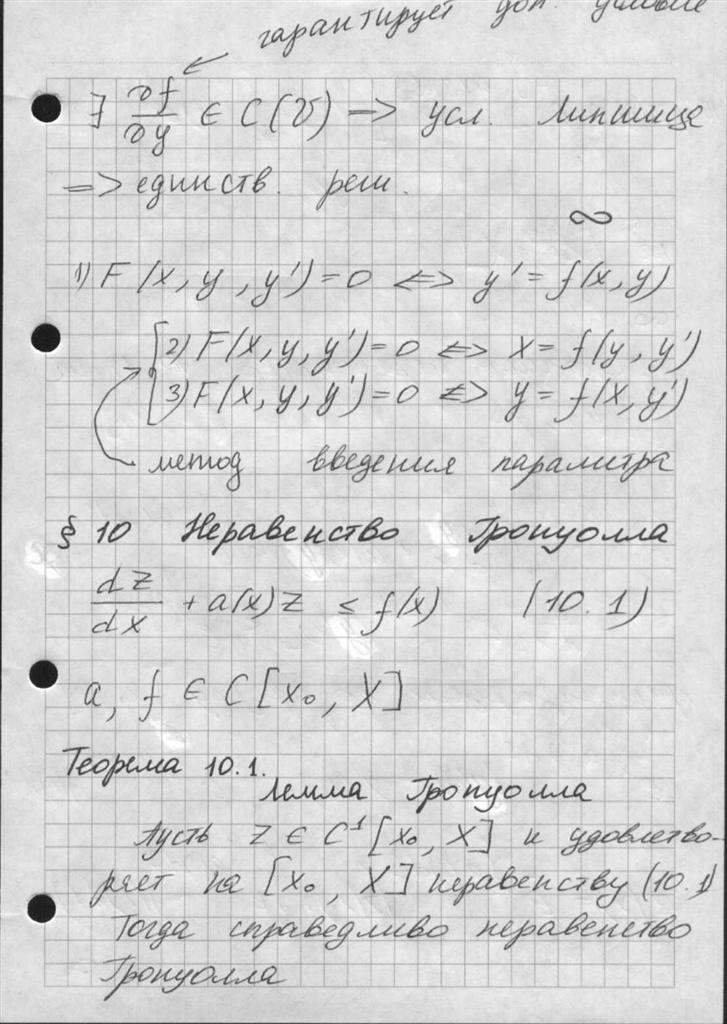 гарантирует доп. условие
∃ ∂f/∂y ∈ C(V) => усл. Липшица
=> единств. реш.
∞
1) F(x, y, y') = 0 <=> y' = f(x, y)
[2) F(x, y, y') = 0 <=> x = f(y, y')
[3) F(x, y, y') = 0 <=> y = f(x, y')
метод введения параметра
§ 10 Неравенство Гронуолла
dz/dx + a(x)z ≤ f(x) (10.1)
a, f ∈ C[x₀, X]
Теорема 10.1.
Лемма Гронуолла
Пусть z ∈ C¹[x₀, X] и удовлетво-
ряет на [x₀, X] неравенству (10.1)
Тогда справедливо неравенство
Гронуолла